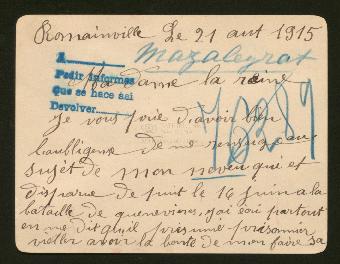 Romainville Le 21 aut 1915
Mazaleyrat
A
Pedir informes
Que se hace asi
Devolver
Madame la reine
Je vous prie d'avoir bien
l'aubligense de me
sujet de mon neveu qui et
disparue depuit le 16 juin a la
bataille de quenevieres, j'ai écri partout
en me dit qu'il présumé prisonnier
vieller avoir la bonté de mon faire sa